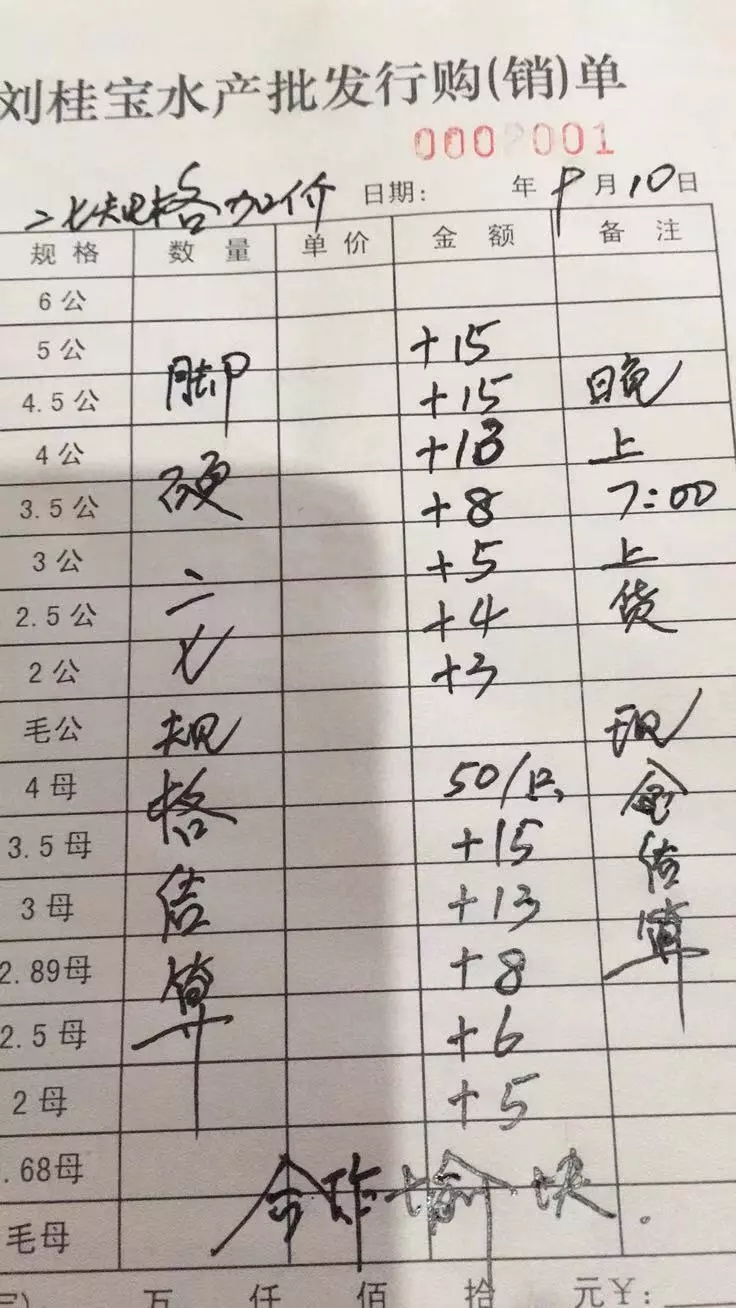 刘桂宝水产批发行购(销)单
0002001
二七规格加价 日期: 年 9月10日
规格 数量 单价 金额 备注
6公
5公 +15
4.5公 脚 +15 晚
4公 +13 上
3.5公 硬 +8 7:00
3公 +5 上
2.5公 二 +4 货
2公 七 +3
毛公 规 现
4母 格 50/只 金
3.5母 +15 结
3母 结 +13 算
2.89母 算 +8
2.5母 +6
2母 +5
.68母
合作愉快.
毛母
万 仟 佰 拾 元¥: